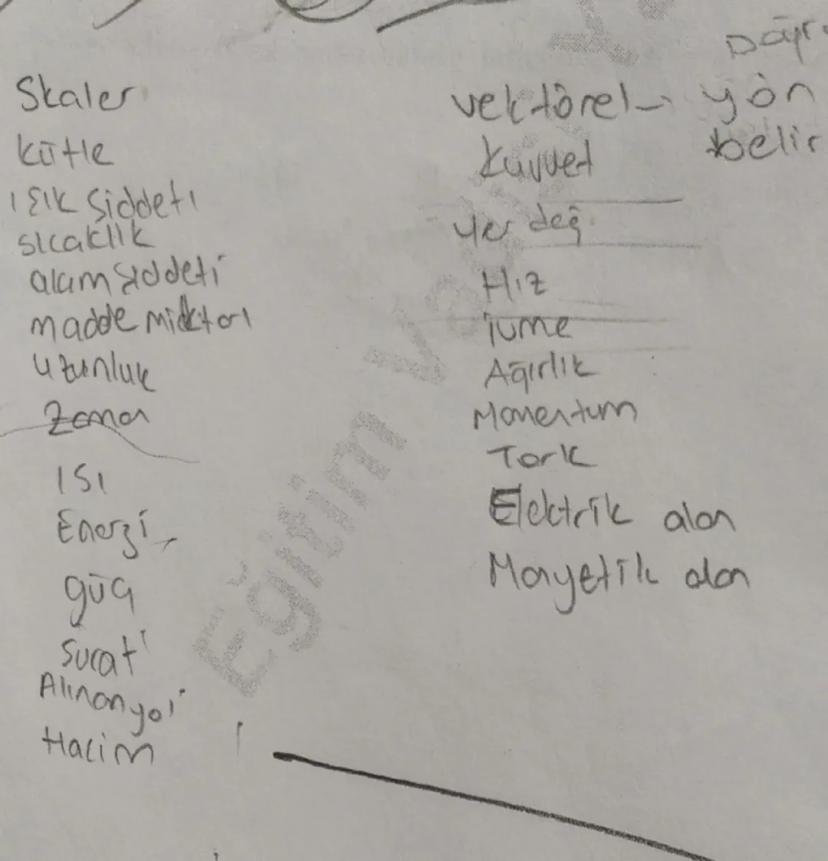 Skaler
kütle
ışık şiddeti
sıcaklık
akım şiddeti
madde miktarı
uzunluk
Zaman
ISI
Enerji
güç
sürat
Alınan yol
Hacim
vektörel → yön
belir
kuvvet
yer değ.
Hız
ivme
Ağırlık
Momentum
Tork
Elektrik alan
Manyetik alan
Eğitim